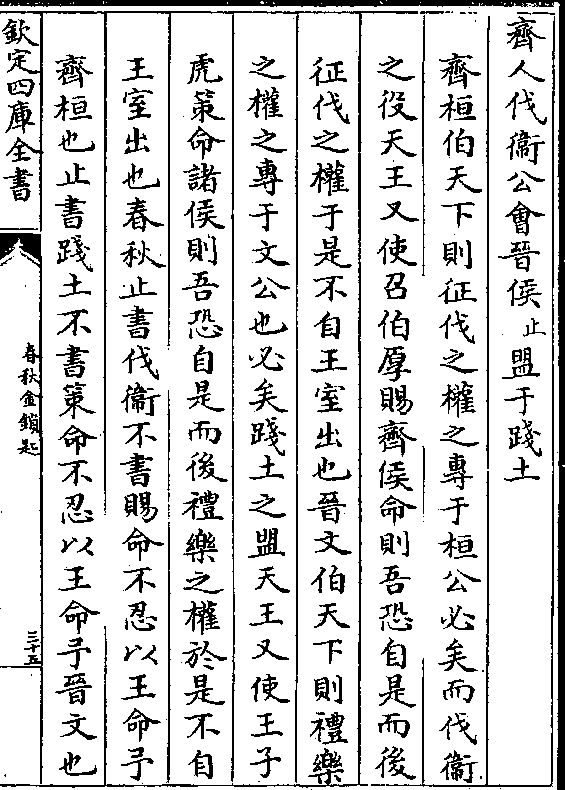 齊人伐衞公會晉侯止盟于踐土
齊桓伯天下則征伐之權之專于桓公必矣而伐衞
之役天王又使召伯厚賜齊侯命則吾恐自是而後
征伐之權于是不自王室出也晉文伯天下則禮樂
之權之專于文公也必矣踐土之盟天王又使王子
虎策命諸侯則吾恐自是而後禮樂之權於是不自
王室出也春秋止書伐衞不書賜命不忍以王命予
齊桓也止書踐土不書策命不忍以王命予晉文也
欽定四庫全書
春秋金鎖匙
三十五